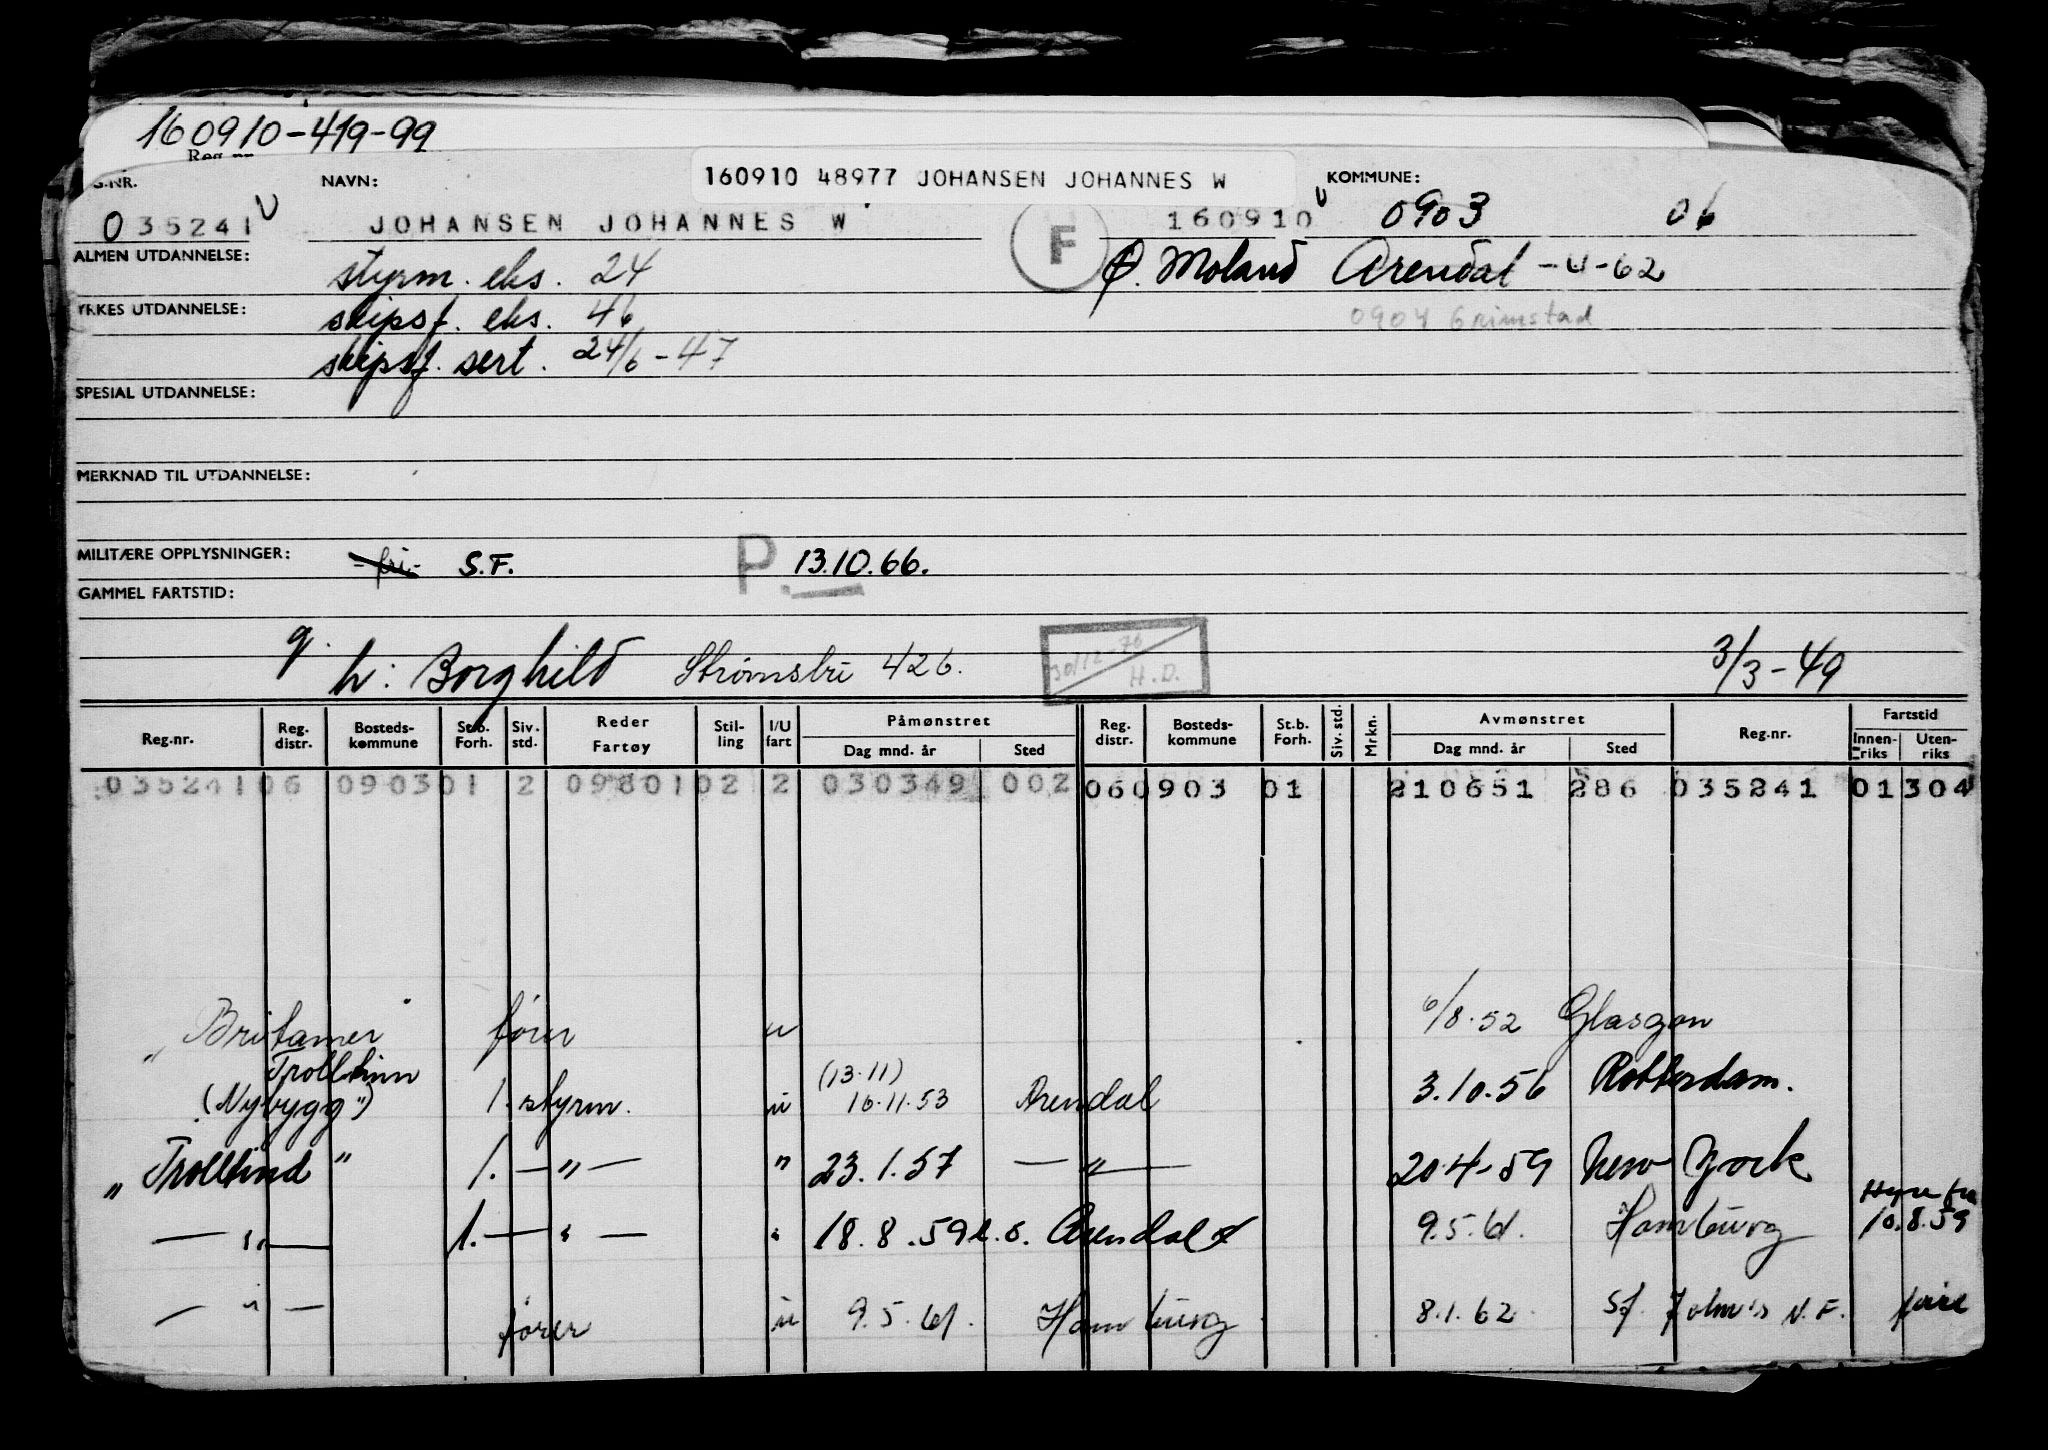 160910-419-99
Reg.nr.
160910 48977 JOHANSEN JOHANNES W
G.NR. NAVN: KOMMUNE:
0 35241 U JOHANSEN JOHANNES W F 160910 U 0903 06
ALMEN UTDANNELSE: styrm. eks. 24 Ø. Moland Arendal -4-62
YRKES UTDANNELSE: skipsf. eks. 46 0904 Grimstad
skipsf. sert. 24/6-47
SPESIAL UTDANNELSE:
MERKNAD TIL UTDANNELSE:
MILITÆRE OPPLYSNINGER: -fri- S.F. P. 13.10.66.
GAMMEL FARTSTID:
g. h: Borghild Strømsbu 426. 30/12-76 H.D. 3/3-49
Reg.nr. Reg. distr. Bosteds-kommune St.b. Forh. Siv. std. Reder Fartøy Stil-ling I/U fart Påmønstret Dag mnd. år Sted Reg. distr. Bosteds-kommune St.b. Forh. Siv. std. Mrkn. Avmønstret Dag mnd. år Sted Reg.nr. Fartstid Innen-riks Uten-riks
035241 06 0903 01 2 09801 02 2 030349 002 06 0903 01 210651 286 035241 01 304
" Britamer fører u 6/8.52 Glasgow
Trolltinn
("Nybygg") 1. styrm. u (13.11) 16.11.53 Arendal 3.10.56 Rotterdam.
"Trolltind" 1. —"— " 23.1.57 —"— 20.4-59 New York
—"— 1. —"— " 18.8.59 Arendal 9.5.61. Hamburg Hyre fra 10.8.59
—"— fører u 9.5.61. Hamburg 8.1.62 St. John's N.F.